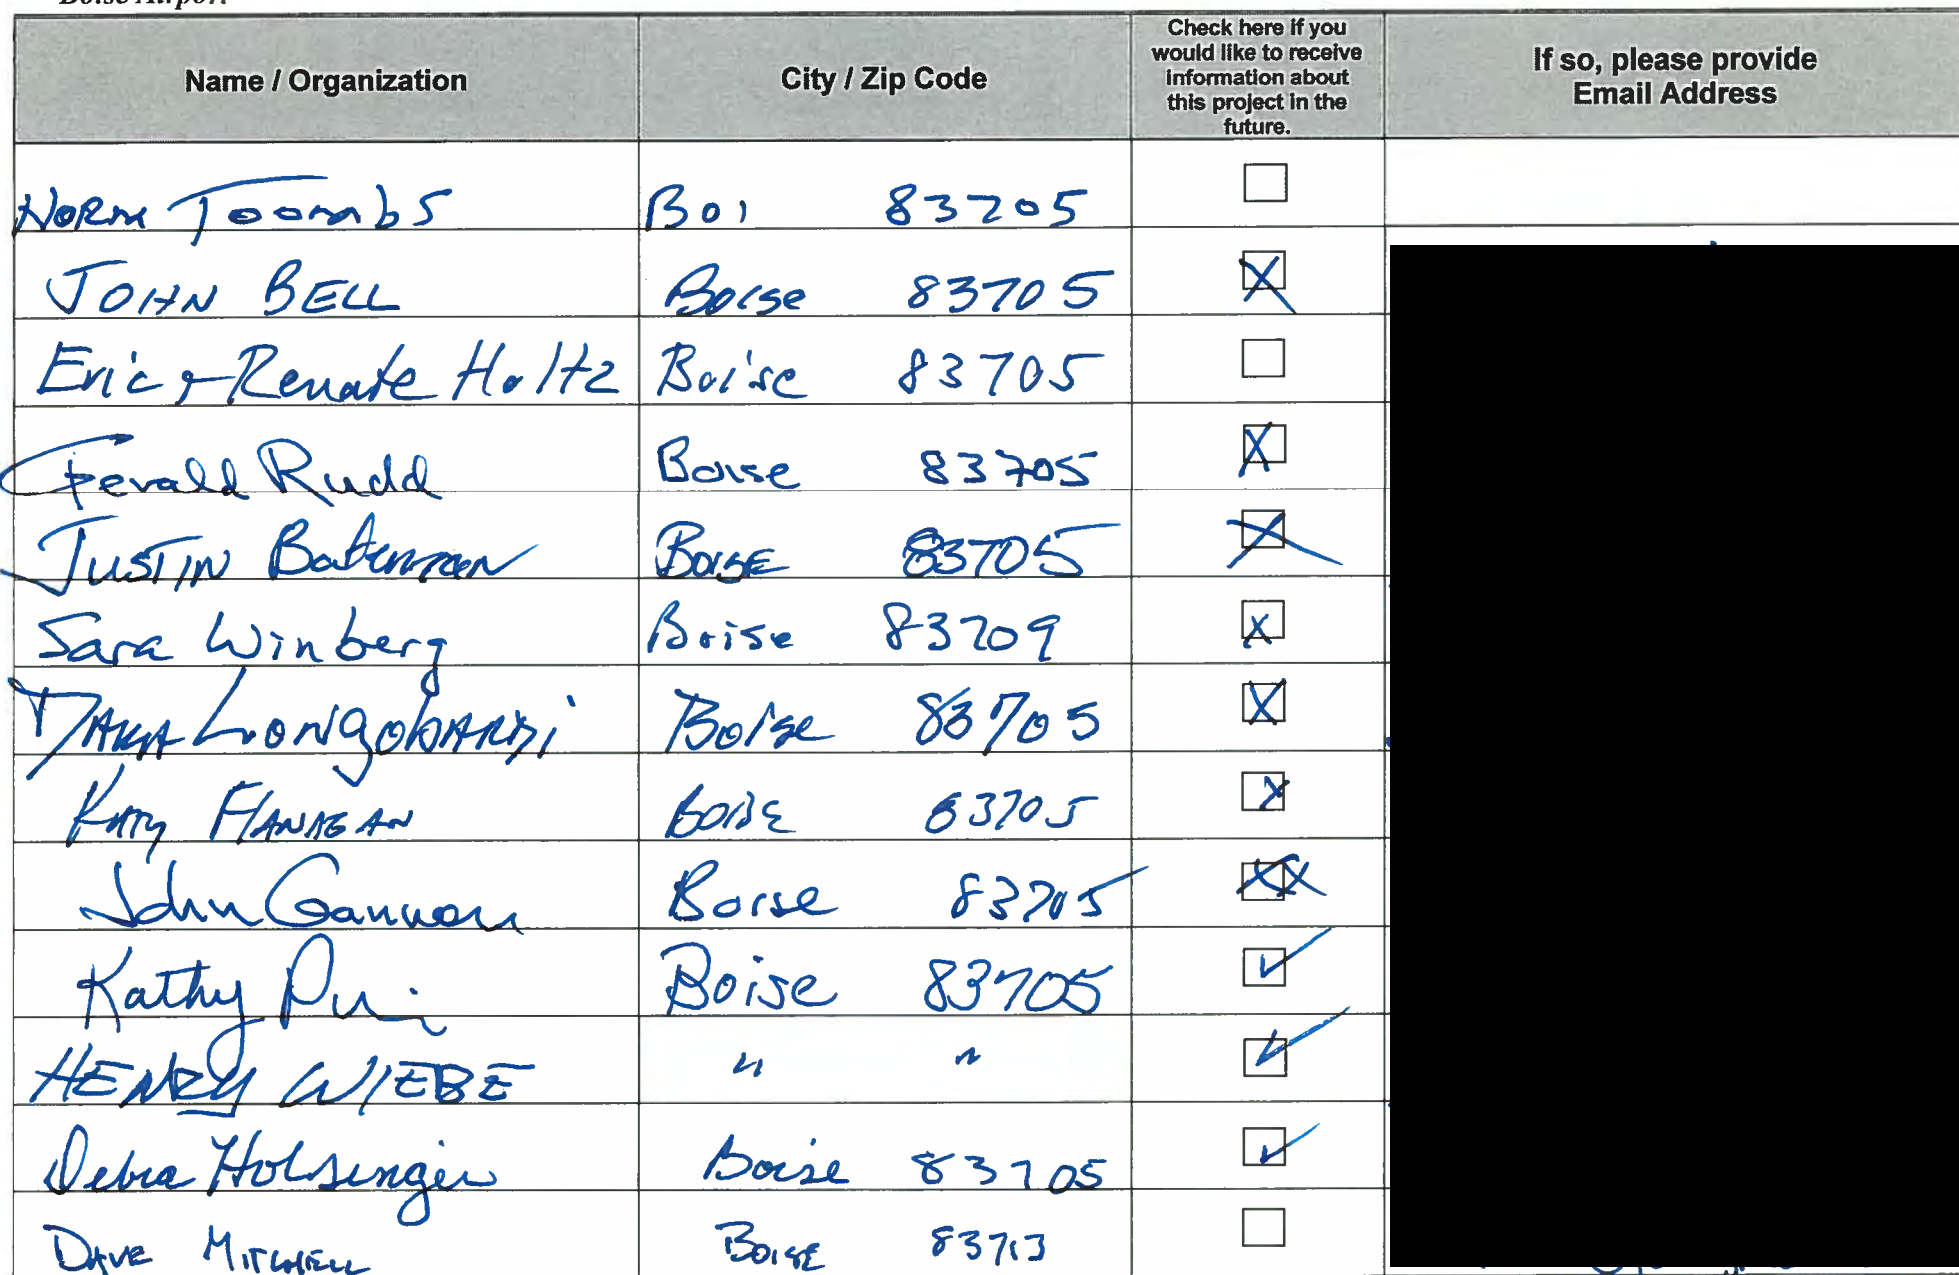 Boise Airport
Name / Organization City / Zip Code Check here if you would like to receive information about this project in the future. If so, please provide Email Address
Norm Toombs Boi 83705 ☐
JOHN BELL Boise 83705 ☒
Eric + Renate Holtz Boise 83705 ☐
Gerald Rudd Boise 83705 ☒
JUSTIN Bateman BOISE 83705 ☒
Sara Winberg Boise 83709 ☒
DANA LONgObARDi Boise 83705 ☒
KATY FLANAGAN BOISE 83705 ☒
John Gannon Boise 83705 ☒
Kathy Boise 83705 ☑
HENRY WIEBE " " ☑
Debra Holsinger Boise 83705 ☑
DAVE MITCHELL BOISE 83713 ☐